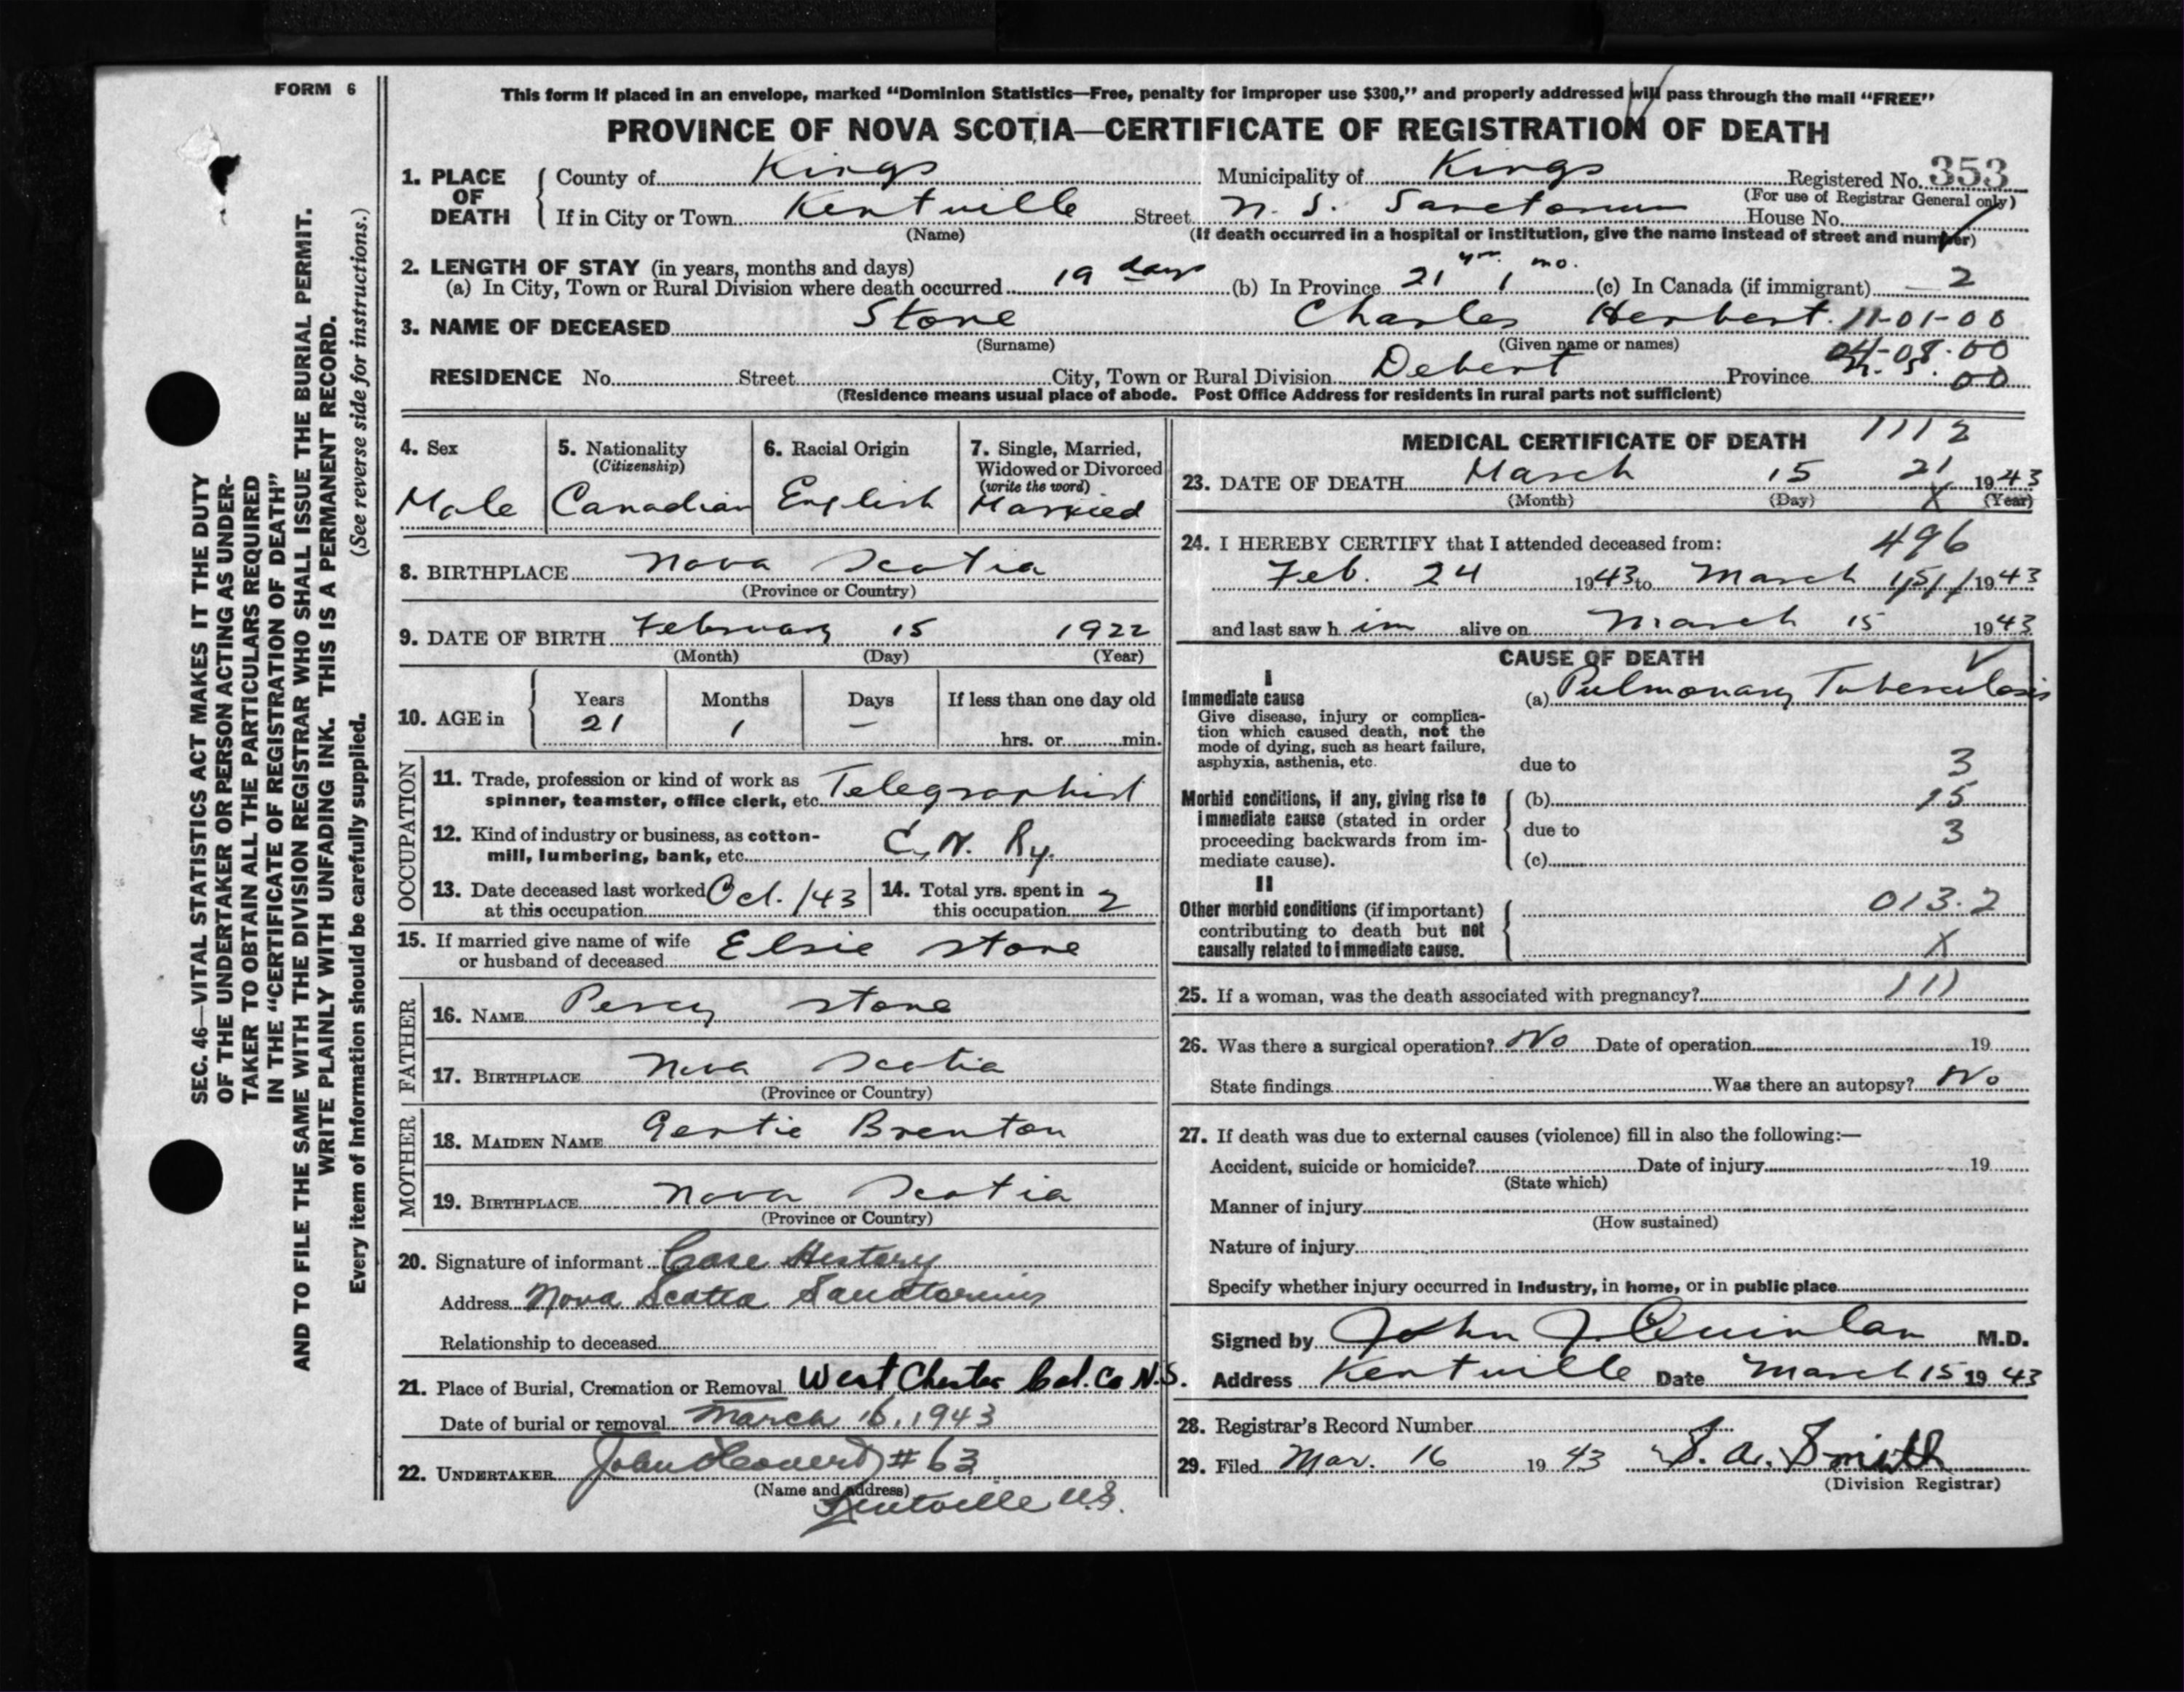 FORM 6
This form if placed in an envelope, marked "Dominion Statistics—Free, penalty for improper use $300," and properly addressed will pass through the mail "FREE"
PROVINCE OF NOVA SCOTIA—CERTIFICATE OF REGISTRATION OF DEATH
1. PLACE OF DEATH
County of Kings Municipality of Kings Registered No. 353
(For use of Registrar General only)
If in City or Town Kentville Street N. S. Sanatorium House No.
(Name) (If death occurred in a hospital or institution, give the name instead of street and number)
2. LENGTH OF STAY (in years, months and days)
(a) In City, Town or Rural Division where death occurred 19 days (b) In Province 21 yrs. 1 mo. (c) In Canada (if immigrant) 2
3. NAME OF DECEASED Stone Charles Herbert. 11-01-00
(Surname) (Given name or names)
04-08-00
RESIDENCE No. Street City, Town or Rural Division Debert Province 00
(Residence means usual place of abode. Post Office Address for residents in rural parts not sufficient)
4. Sex
Male
5. Nationality
(Citizenship)
Canadian
6. Racial Origin
English
7. Single, Married,
Widowed or Divorced
(write the word)
Married
8. BIRTHPLACE Nova Scotia
(Province or Country)
9. DATE OF BIRTH February 15 1922
(Month) (Day) (Year)
10. AGE in
Years Months Days If less than one day old
21 1 —
hrs. or min.
OCCUPATION
11. Trade, profession or kind of work as
spinner, teamster, office clerk, etc. Telegraphist
12. Kind of industry or business, as cotton-
mill, lumbering, bank, etc. C. N. Ry.
13. Date deceased last worked
at this occupation Oct. /43
14. Total yrs. spent in
this occupation 2
15. If married give name of wife
or husband of deceased Elsie Stone
FATHER
16. NAME Percy Stone
17. BIRTHPLACE Nova Scotia
(Province or Country)
MOTHER
18. MAIDEN NAME Gertie Brenton
19. BIRTHPLACE Nova Scotia
(Province or Country)
20. Signature of informant Case History
Address Nova Scotia Sanatorium
Relationship to deceased
21. Place of Burial, Cremation or Removal West Chester Col. Co N.S.
Date of burial or removal March 16, 1943
22. UNDERTAKER John #63
(Name and address)
Kentville N.S.
MEDICAL CERTIFICATE OF DEATH 1112
23. DATE OF DEATH March 15 21 1943
(Month) (Day) X (Year)
24. I HEREBY CERTIFY that I attended deceased from: 496
Feb. 24 1943 to March 15 1943
and last saw him alive on March 15 1943
CAUSE OF DEATH
I
Immediate cause
Give disease, injury or complica-
tion which caused death, not the
mode of dying, such as heart failure,
asphyxia, asthenia, etc.
(a) Pulmonary Tuberculosis
due to 3
Morbid conditions, if any, giving rise to
immediate cause (stated in order
proceeding backwards from im-
mediate cause).
(b) 15
due to 3
(c)
II
Other morbid conditions (if important)
contributing to death but not
causally related to immediate cause.
013.2
X
25. If a woman, was the death associated with pregnancy? 111
26. Was there a surgical operation? No Date of operation 19
State findings Was there an autopsy? No
27. If death was due to external causes (violence) fill in also the following:—
Accident, suicide or homicide? Date of injury 19
(State which)
Manner of injury
(How sustained)
Nature of injury
Specify whether injury occurred in Industry, in home, or in public place
Signed by John J. Quinlan M.D.
Address Kentville Date March 15 1943
28. Registrar's Record Number
29. Filed Mar. 16 1943 S. A. Smith
(Division Registrar)
SEC. 46—VITAL STATISTICS ACT MAKES IT THE DUTY
OF THE UNDERTAKER OR PERSON ACTING AS UNDER-
TAKER TO OBTAIN ALL THE PARTICULARS REQUIRED
IN THE "CERTIFICATE OF REGISTRATION OF DEATH"
AND TO FILE THE SAME WITH THE DIVISION REGISTRAR WHO SHALL ISSUE THE BURIAL PERMIT.
WRITE PLAINLY WITH UNFADING INK. THIS IS A PERMANENT RECORD.
Every item of information should be carefully supplied. (See reverse side for instructions.)